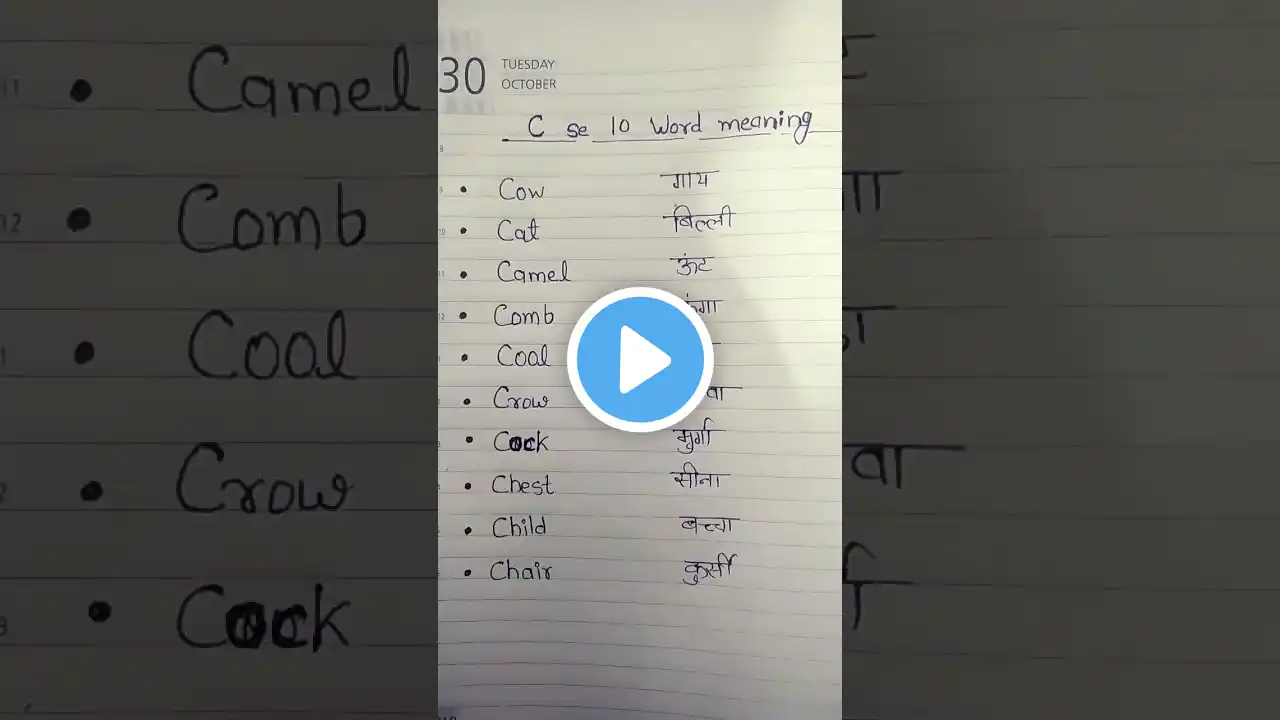 Camel
Comb
Coal
Crow
Cock
30 TUESDAY
OCTOBER
C se 10 Word meaning
• Cow गाय
• Cat बिल्ली
• Camel ऊंट
• Comb
• Coal
• Crow
• Cock मुर्गा
• Chest सीना
• Child बच्चा
• Chair कुर्सी